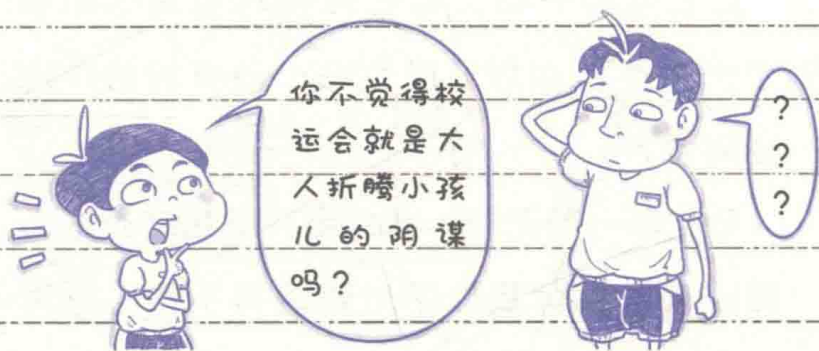 你不觉得校
运会就是大
人折腾小孩
儿的阴谋
吗？
？
？
？